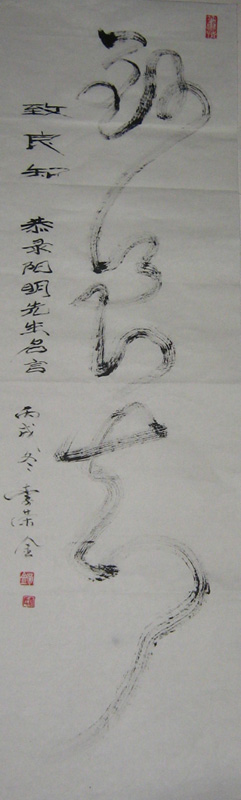 致良知
致良知
恭录阳明先生名言
丙戌冬